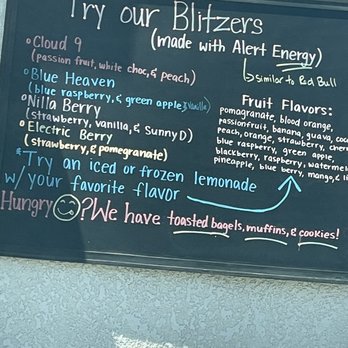 Try our Blitzers
(made with Alert Energy)
similar to Red Bull
Cloud 9
(passion fruit, white choc, & peach)
Blue Heaven
(blue raspberry, & green apple & vanilla)
Nilla Berry
(strawberry, vanilla, & Sunny D)
Electric Berry
(strawberry, & pomegranate)
*Try an iced or frozen lemonade
w/your favorite flavor
Fruit Flavors:
pomegranate, blood orange,
passionfruit, banana, guava, coco
peach, orange, strawberry, cher
blue raspberry, green apple,
blackberry, raspberry, waterme
pineapple, blue berry, mango, & li
Hungry ☺?We have toasted bagels, muffins, & cookies!